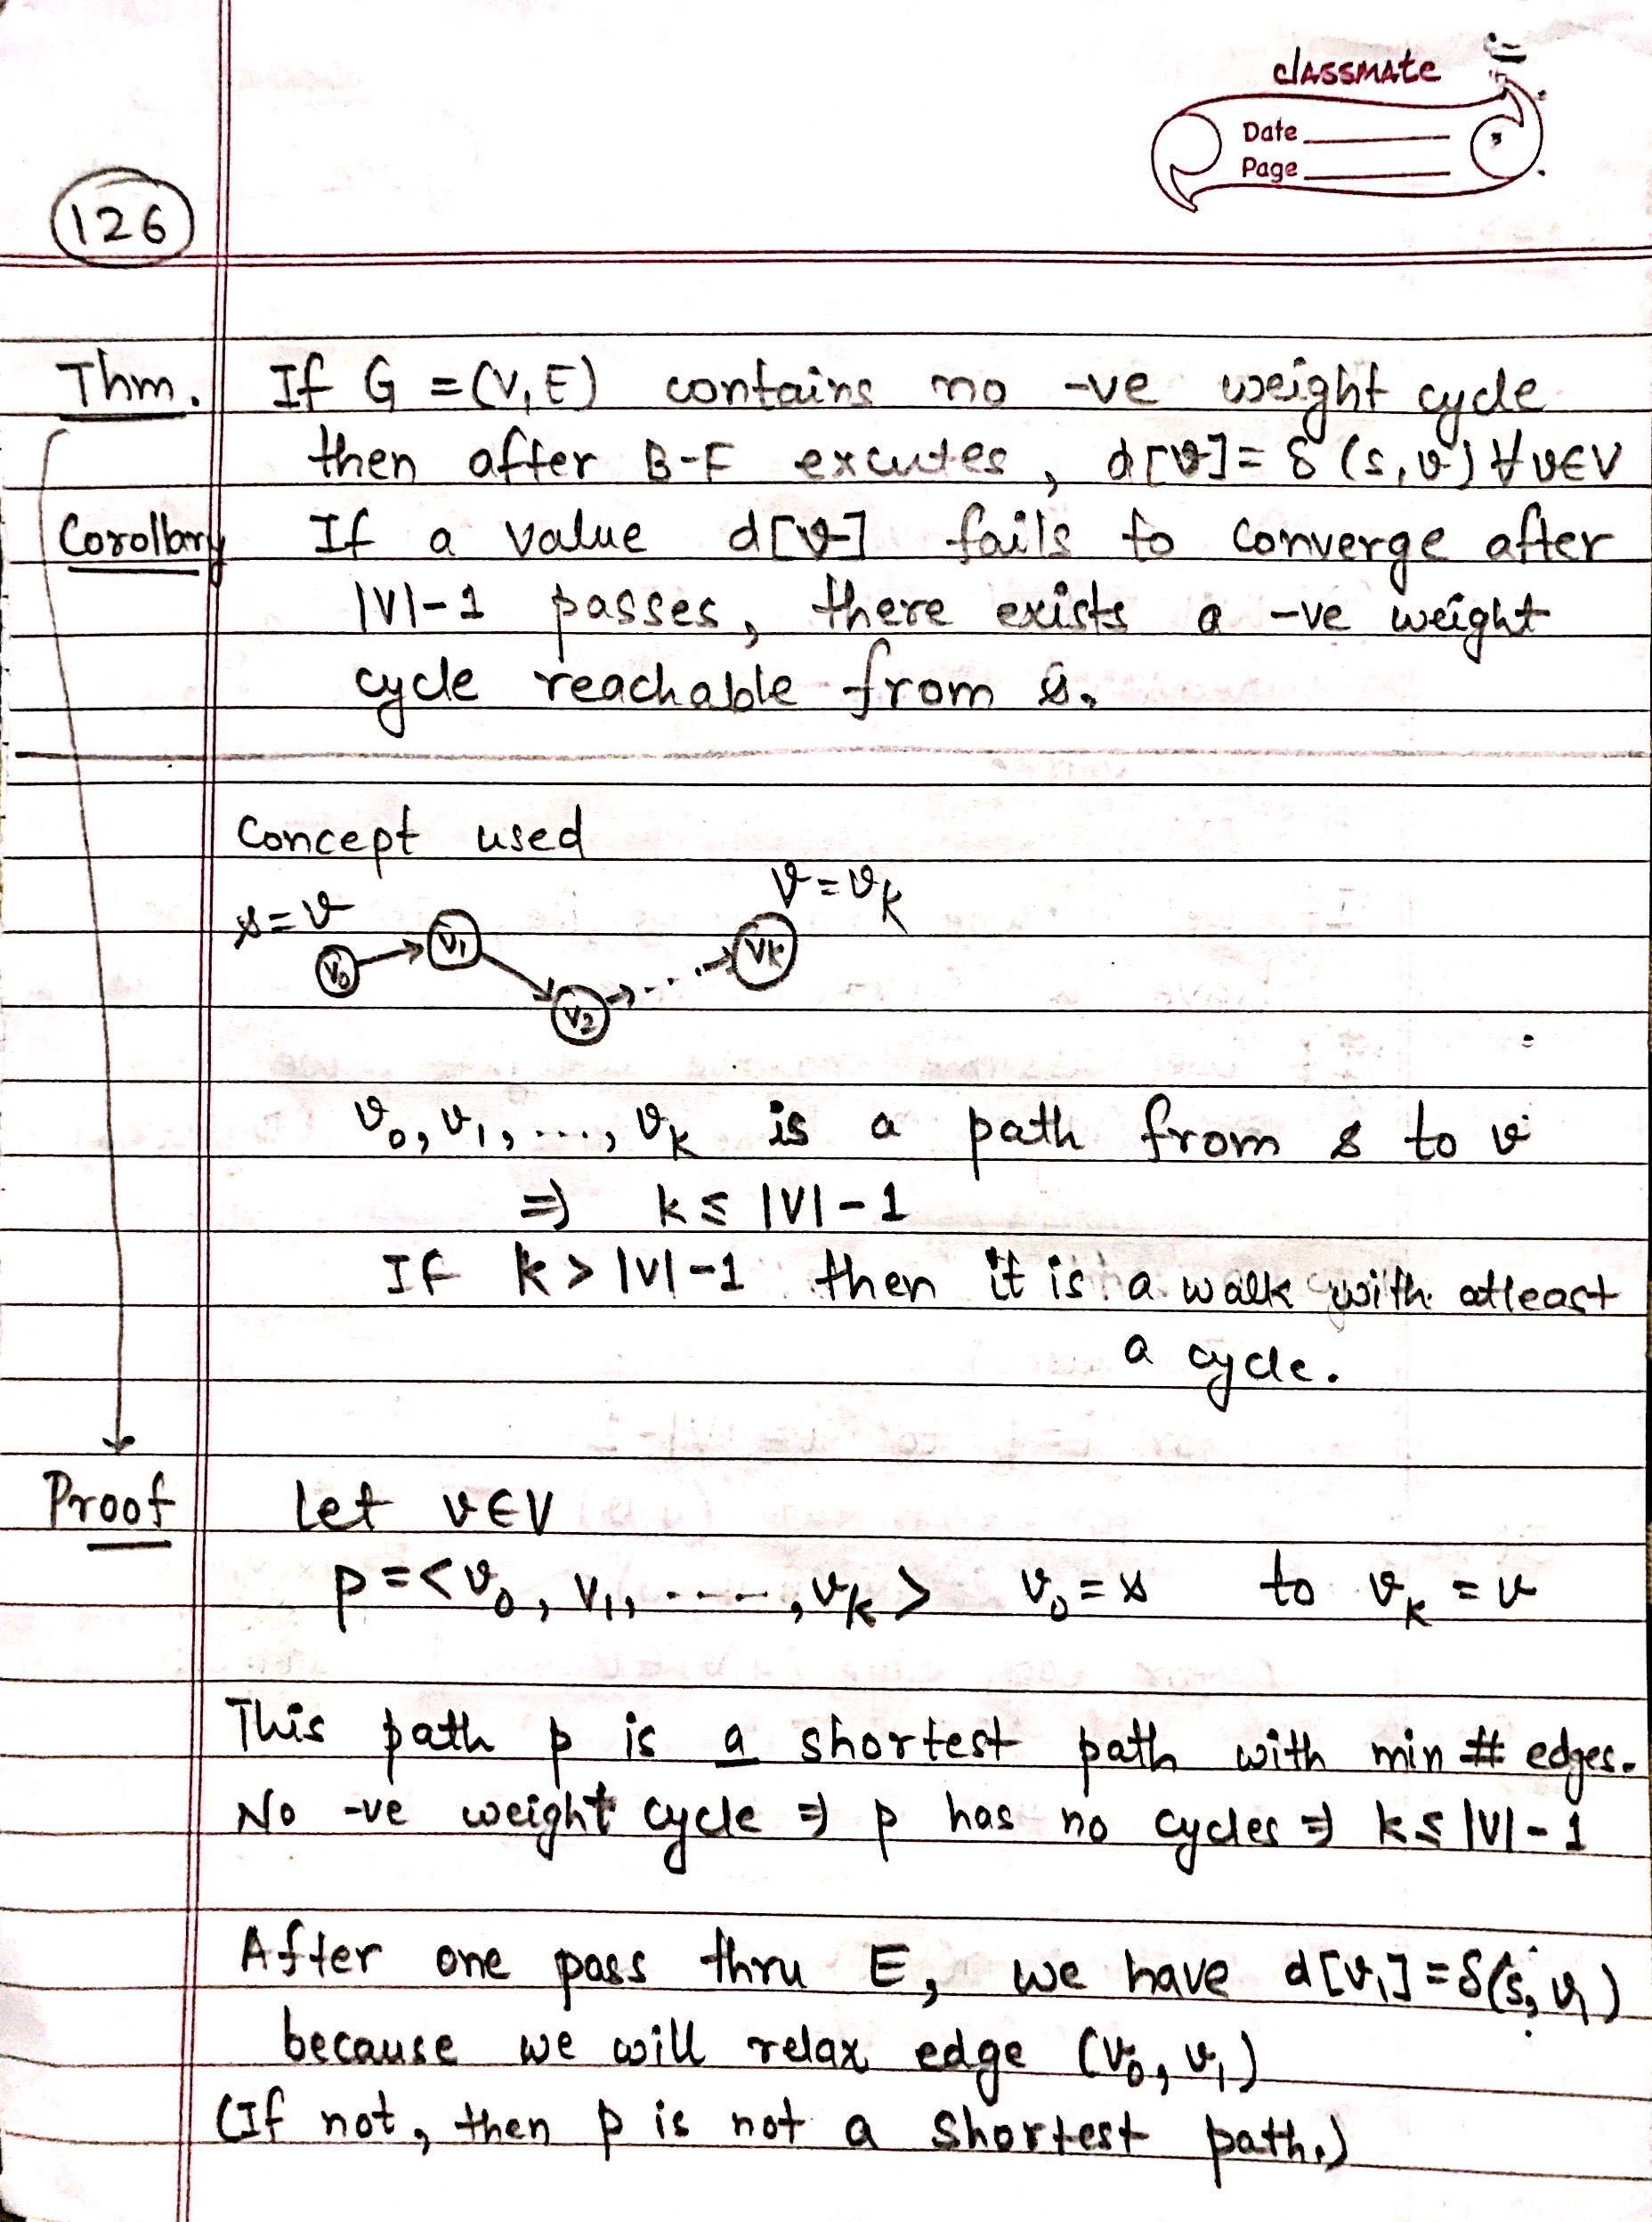 classmate
Date
Page
126
Thm. If G = (V, E) contains no -ve weight cycle
then after B-F excutes, d[v] = δ (s, v) ∀ v ∈ V
Corollary If a value d[v] fails to converge after
|V|-1 passes, there exists a -ve weight
cycle reachable from s.
Concept used
v = vk
s = v
v0 v1 v2 ... vk
v0, v1, ...., vk is a path from s to v
⇒ k ≤ |V| - 1
If k > |V| - 1 then it is a walk with atleast
a cycle.
Proof Let v ∈ V
p = < v0, v1, ....., vk > v0 = s to vk = v
This path p is a shortest path with min # edges.
No -ve weight cycle ⇒ p has no cycles ⇒ k ≤ |V| - 1
After one pass thru E, we have d[v1] = δ(s, v1)
because we will relax edge (v0, v1)
(If not, then p is not a shortest path.)